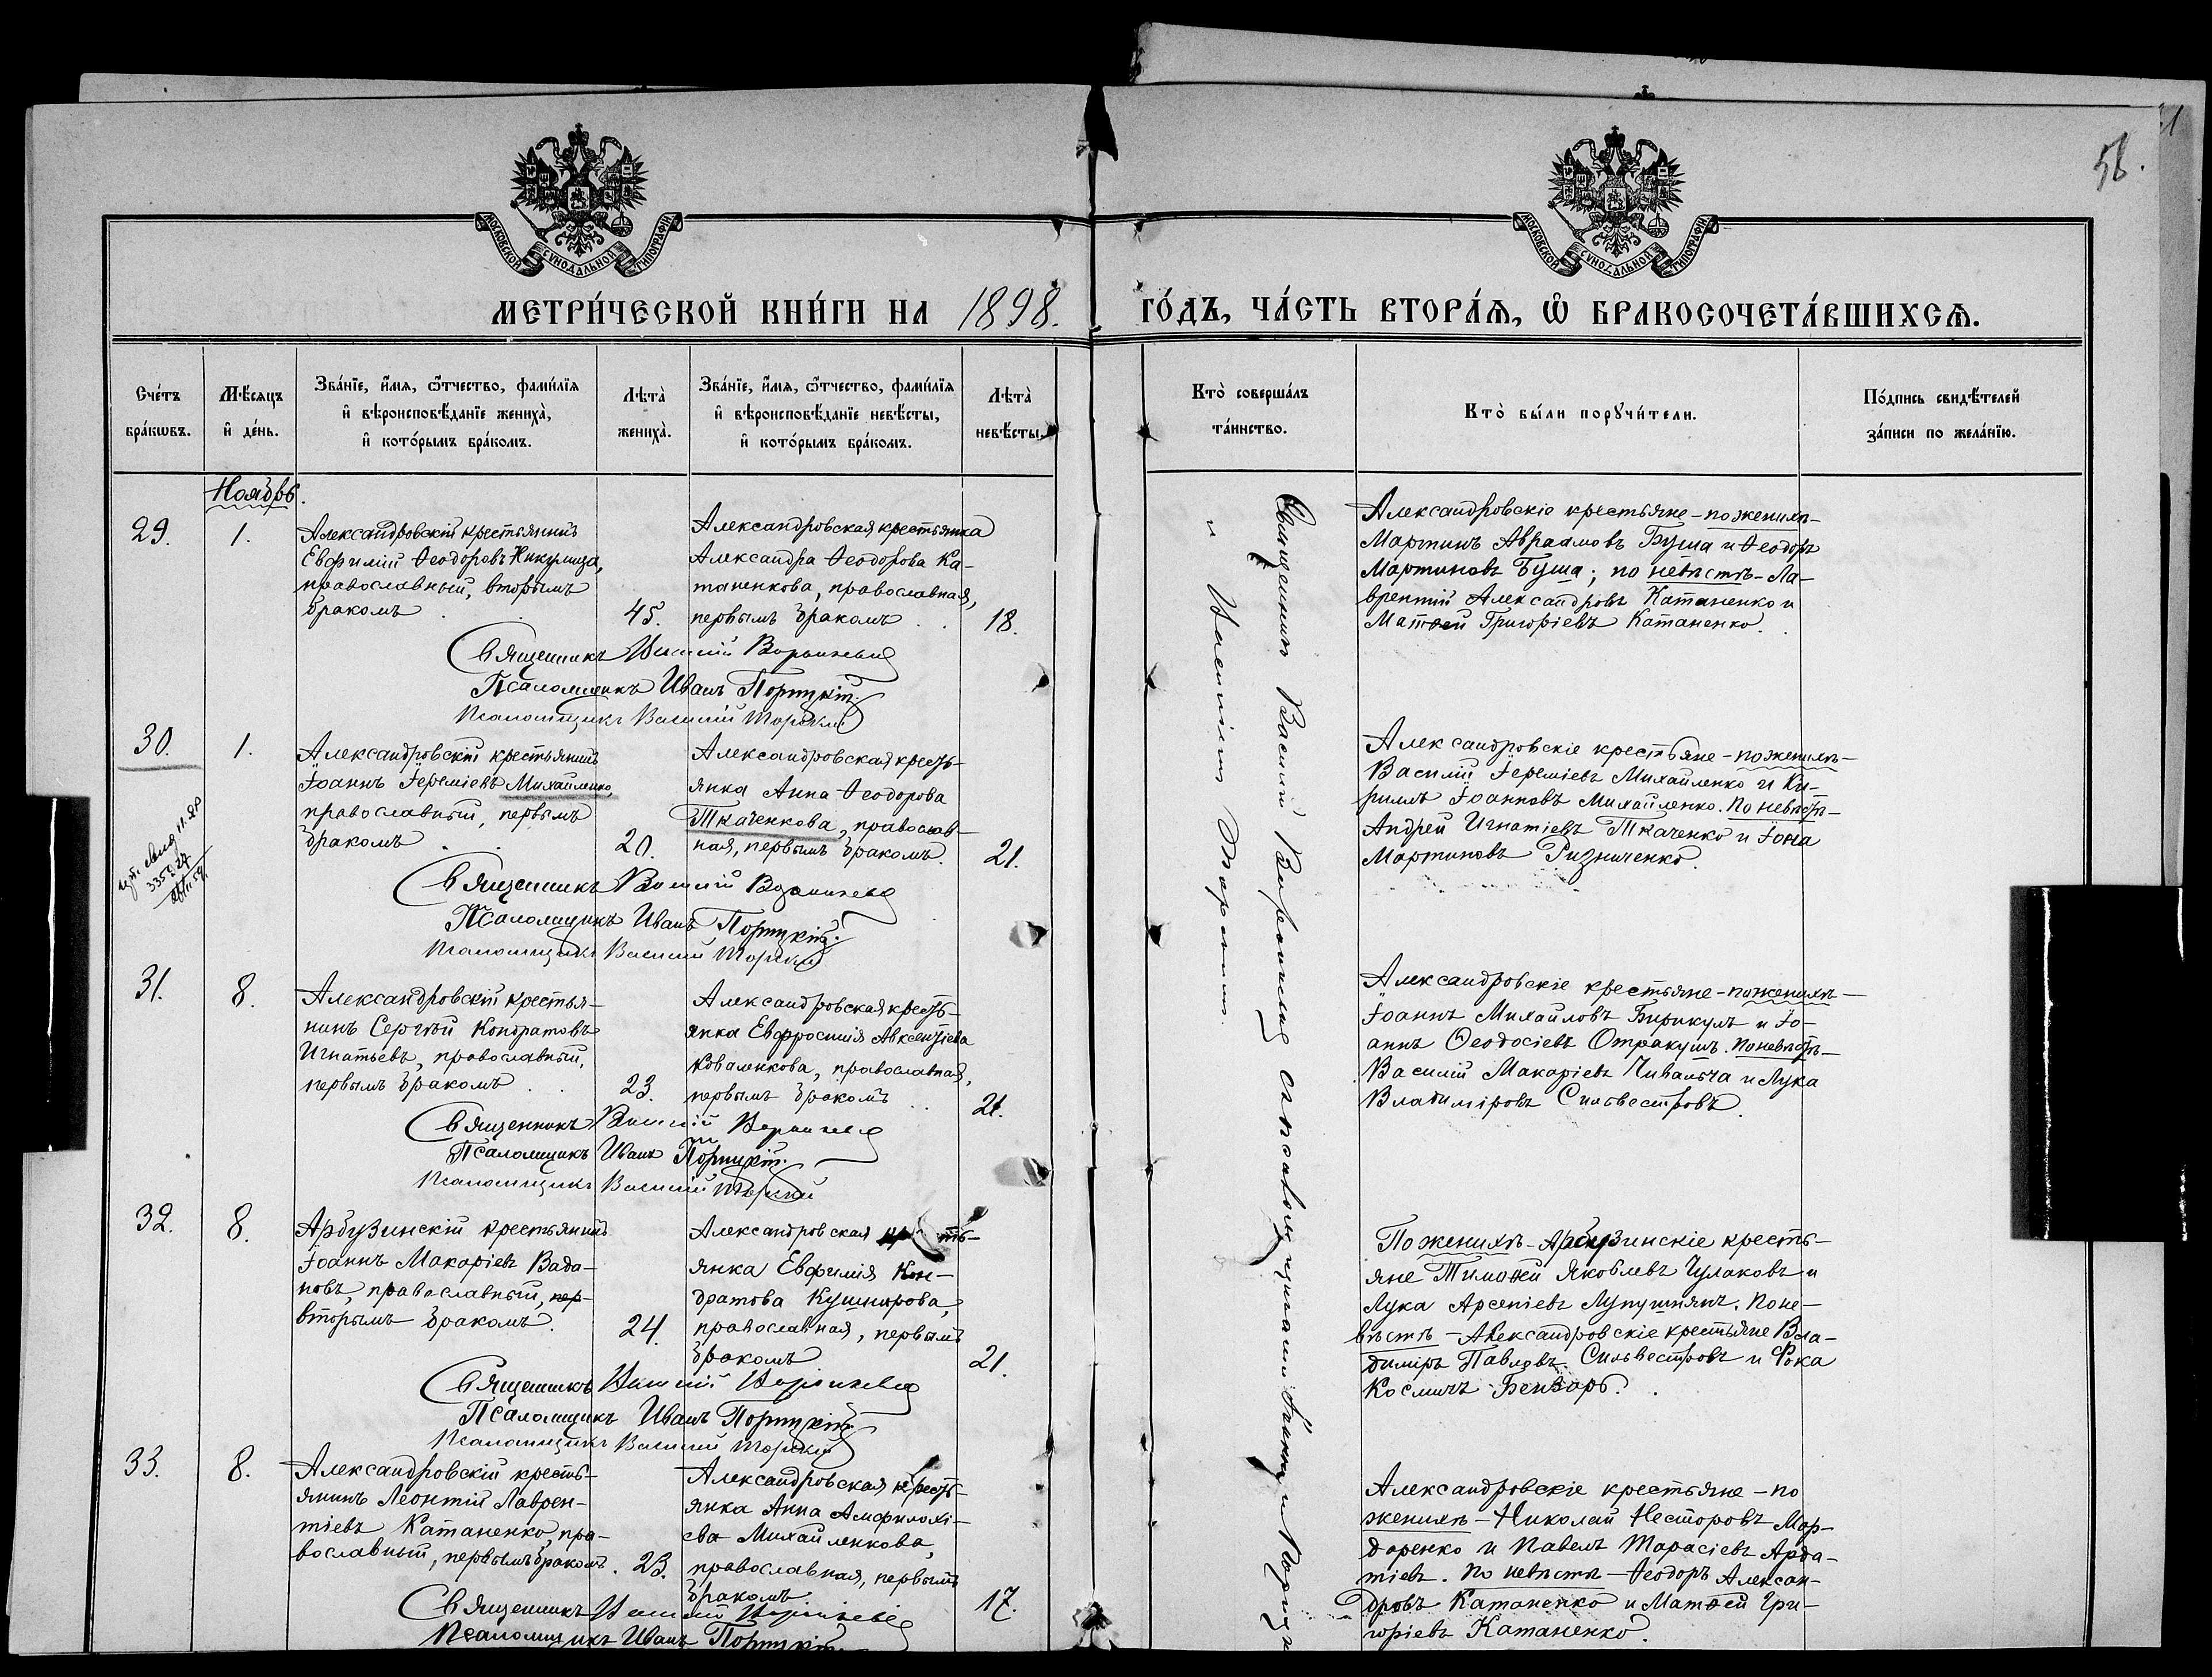 56.
МОСКОВСКОЙ СѴНОДАЛЬНОЙ ТИПОГРАФІИ
МОСКОВСКОЙ СѴНОДАЛЬНОЙ ТИПОГРАФІИ
МЕТРИ́ЧЕСКОЙ КНИ́ГИ НА 1898. ГО́ДЪ, ЧА́СТЬ ВТОРА́Я, Ѡ҆ БРАКОСОЧЕТА́ВШИХСѦ.
Сче́тъ
бра́кѡвъ.
Мѣ́сяцъ
и҆ де́нь.
Зва́нїе, и҆́мѧ, ѻ҆́тчество, фами́лїѧ
и҆ вѣроисповѣ́данїе жениха̀,
и҆ кото́рымъ бра́комъ.
Лѣта̀
жениха̀.
Зва́нїе, и҆́мѧ, ѻ҆́тчество, фами́лїѧ
и҆ вѣроисповѣ́данїе невѣ́сты,
и҆ кото́рымъ бра́комъ.
Лѣта̀
невѣ́сты.
Кто̀ соверша́лъ
та́инство.
Кто̀ бы́ли порꙋчи́тели.
По́дпись свидѣ́телей
за́писи по жела́нїю.
Ноябрь.
29.
1.
Александровскій крестьянинъ
Евфимій Ѳеодоровъ Никулица,
православный, вторымъ
бракомъ
45.
Александровская крестьянка
Александра Ѳеодорова Ка-
таненкова, православная,
первымъ бракомъ
18.
Александровскіе крестьяне - по женихѣ -
Мартинъ Авраамовъ Буша и Ѳеодоръ
Мартиновъ Буша; по невѣстѣ - Ла-
врентій Александровъ Катаненко и
Матѳей Григоріевъ Катаненко.
Священникъ
Псаломщикъ Иванъ
Псаломщикъ Василій
30.
1.
Александровскій крестьянинъ
Іоаннъ Іереміевъ Михайленко,
православный, первымъ
бракомъ
20.
Александровская кресть-
янка Анна Ѳеодорова
Ткаченкова, православ-
ная, первымъ бракомъ.
21.
Александровскіе крестьяне - по женихѣ -
Василій Іереміевъ Михайленко и Ки-
риллъ Іоанновъ Михайленко. По невѣстѣ -
Андрей Игнатіевъ Ткаченко и Іона
Мартиновъ Ризниченко.
Священникъ Василій
Псаломщикъ Иванъ
Псаломщикъ Василій
31.
8.
Александровскій крестья-
нинъ Сергѣй Кондратовъ
Игнатьевъ, православный,
первымъ бракомъ
23.
Александровская кресть-
янка Евфросинія Авксентіева
Коваленкова, православная,
первымъ бракомъ
21.
Александровскіе крестьяне - по женихѣ -
Іоаннъ Михайловъ Бирикулъ и Іо-
аннъ Ѳеодосіевъ. По невѣстѣ -
Василій Макаріевъ и Лука
Владиміровъ Сильвестровъ.
Священникъ Василій
Псаломщикъ Иванъ
Псаломщикъ Василій
32.
8.
Арбузинскій крестьянинъ
Іоаннъ Макаріевъ Вада-
новъ, православный, пер-
вторымъ бракомъ.
24.
Александровская
янка Евфимія Кон-
дратова Кушнирова,
православная, первымъ
бракомъ
21.
По женихѣ - Арбузинскіе кресть-
яне Тимоѳей Яковлевъ Чулаковъ и
Лука Арсеніевъ Лупушнянъ. По не-
вѣстѣ - Александровскіе крестьяне Вла-
диміръ Павловъ Сильвестровъ и Фока
Космичъ Бензарь.
Священникъ
Псаломщикъ Иванъ
Псаломщикъ Василій
33.
8.
Александровскій кресть-
янинъ Леонтій Лаврен-
тіевъ Катаненко, пра-
вославный, первымъ бракомъ.
23.
Александровская кресть-
янка Анна Амфилохі-
ева Михайленкова,
православная, первымъ
бракомъ
17.
Александровскіе крестьяне - по
женихѣ - Николай Несторовъ Мар-
даренко и Павелъ Тарасіевъ Арда-
тіевъ. По невѣстѣ - Ѳеодоръ Алексан-
дровъ Катаненко и Матѳей Гри-
горіевъ Катаненко.
Священникъ
Псаломщикъ Иванъ
Священникъ Василій